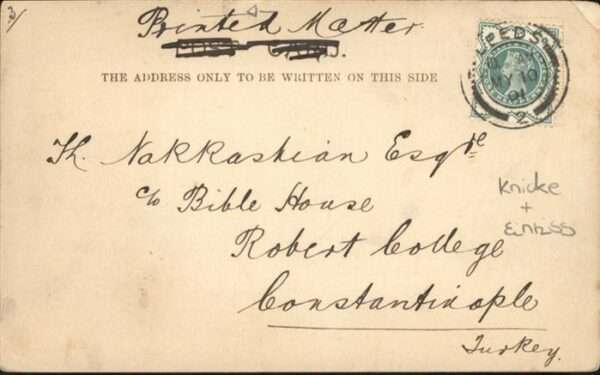 3/
Printed Matter
POST CARD.
THE ADDRESS ONLY TO BE WRITTEN ON THIS SIDE
MY 10
01
2
Th. Nakkashian Esqre
c/o Bible House
Robert College
Constantinople
Turkey.
Knicke
+
Einriss